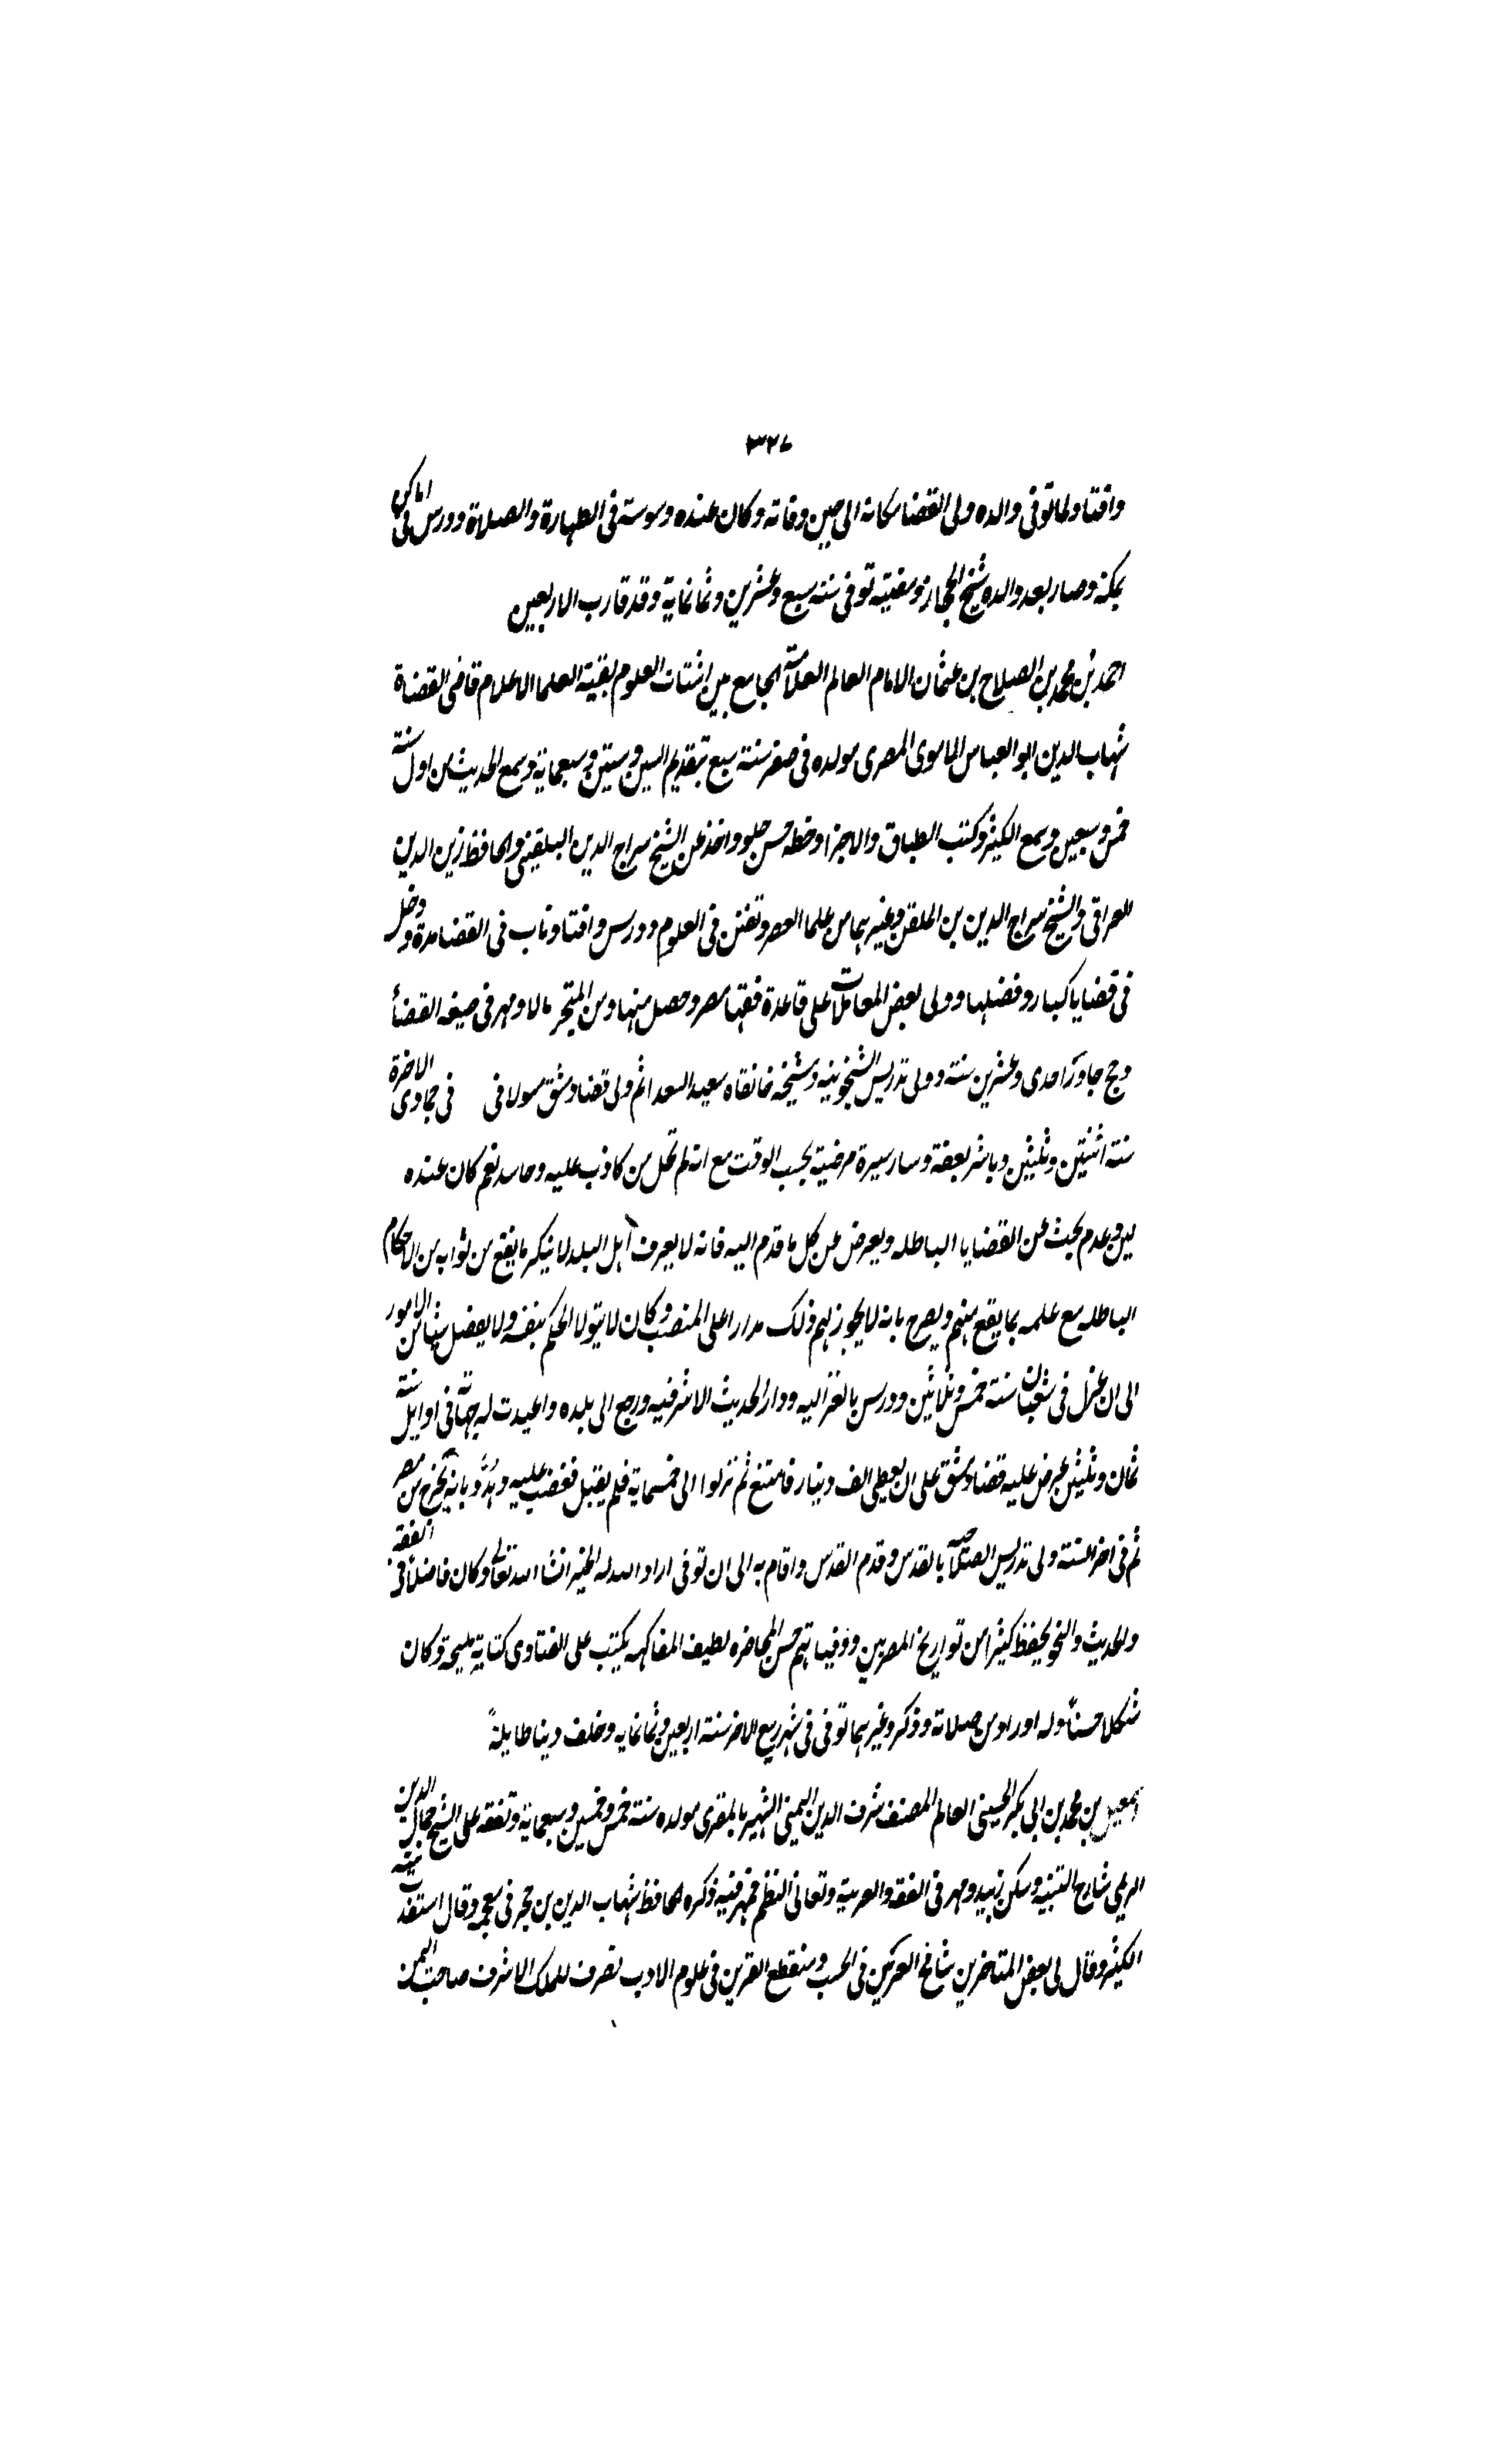 ٣٢٧
وافتا ولما توفى والده ولى القضا مكانه الى حين وفاته وكان عنده وسوسة فى الطهارة والصلاة ودرس فى اماكن
بمكة وصار بعد والده شيخ الحجاز ومفتيه توفى سنة سبع وعشرين وثمانماية وقد قارب الاربعين
احمد بن محمد بن الصلاح بن عثمان الامام العالم العلامة الجامع بين اشتات العلوم بقية العلما الاعلام قاضى القضاة
شهاب الدين ابو العباس الماموى المصرى مولده فى صفر سنة سبع بتقديم السين وستين وسبعماية وسمع الحديث من اول سنة
خمس وسبعين وسمع الكثير وكتب الطباق والاجزا وخطه حسن حلو واخذ عن الشيخ سراج الدين البلقينى والحافظ زين الدين
العراقى والشيخ سراج الدين بن الملقن وغيرهما من علما العصر وتفنن فى العلوم ودرس وافتا وناب فى القضا مدة ودخل
فى قضايا كبار وفصلها وولى بعض المعاملات على قاعدة فقها مصر وحصل منها ومن المتجر مالا ومهر فى صيغه القضا
وحج جاور احدى وعشرين سنة وولى تدريس الشيخونية ومشيخه خانقاه سعيد السعدا ثم ولى قضا دمشق مسولا فى فى جمادى الاخرة
سنة اثنتين وثلثين وباشر بعفة وسار سيرة مرضية بحسب الوقت مع انه لم تخل من كاذب عليه وحاسد نعم كان عنده
لين وعدم بحث عن القضايا الباطله ويعرض عن كل ما قدم اليه فانه لا يعرف اهل البلد لا ينكر ما يقع من نوابه من الاحكام
الباطله مع علمه بما يقع منهم ويصرح بانه لا يجوز لهم ذلك مدارا على المنصب وكان لا يتولا الحكم بنفسه ولا يفصل شيا من الامور
الى ان عزل فى شعبان سنة خمس وثلاثين ودرس بالغزاليه ودار الحديث الاشرفيه ورجع الى بلده واعيدت له جهاته فى اوايل سنة
ثمان وثلثين عرض عليه قضا دمشق على ان يعطى الف دينار فامتنع ثم نزلوا الى خمسماية فلم يقبل فغضب عليه وهدد بانه يخرج من مصر
ثم فى اخر السنة ولى تدريس الصلاحية بالقدس وقدم القدس واقام به الى ان توفى اراد الله له الخير انشا الله تعالى وكان فاضلا فى الفقه
والحديث والنحو يحفظ كثيرا من تواريخ المصريين ووفياتهم حسن المحاضره لطيف المفاكهه يكتب على الفتاوى كتابة مليحة وكان
شكلا حسنا وله اوراد من صلاة وذكر وغيرهما توفى فى شهر ربيع الاخر سنة اربعين وثمانمايه وخلف دنيا طايلة
اسمعيل بن محمد بن ابى بكر الحسينى العالم المصنف شرف الدين اليمنى الشهير بالمقرى مولده سنة خمس وخمسين وسبعماية وتفقه على الشيخ جمال الدين
الريمى شارح التنبيه وسكن زبيد ومهر فى الفقه والعربية وتعانى النظم فمهر فيه ذكره الحافظ شهاب الدين بن حجر فى معجمه وقال استفدت منه
الكثير وقال لى بعض المتاخرين شامخ العرنين فى الحسب ومنقطع القرين فى علوم الادب تصرف للملك الاشرف صاحب اليمن